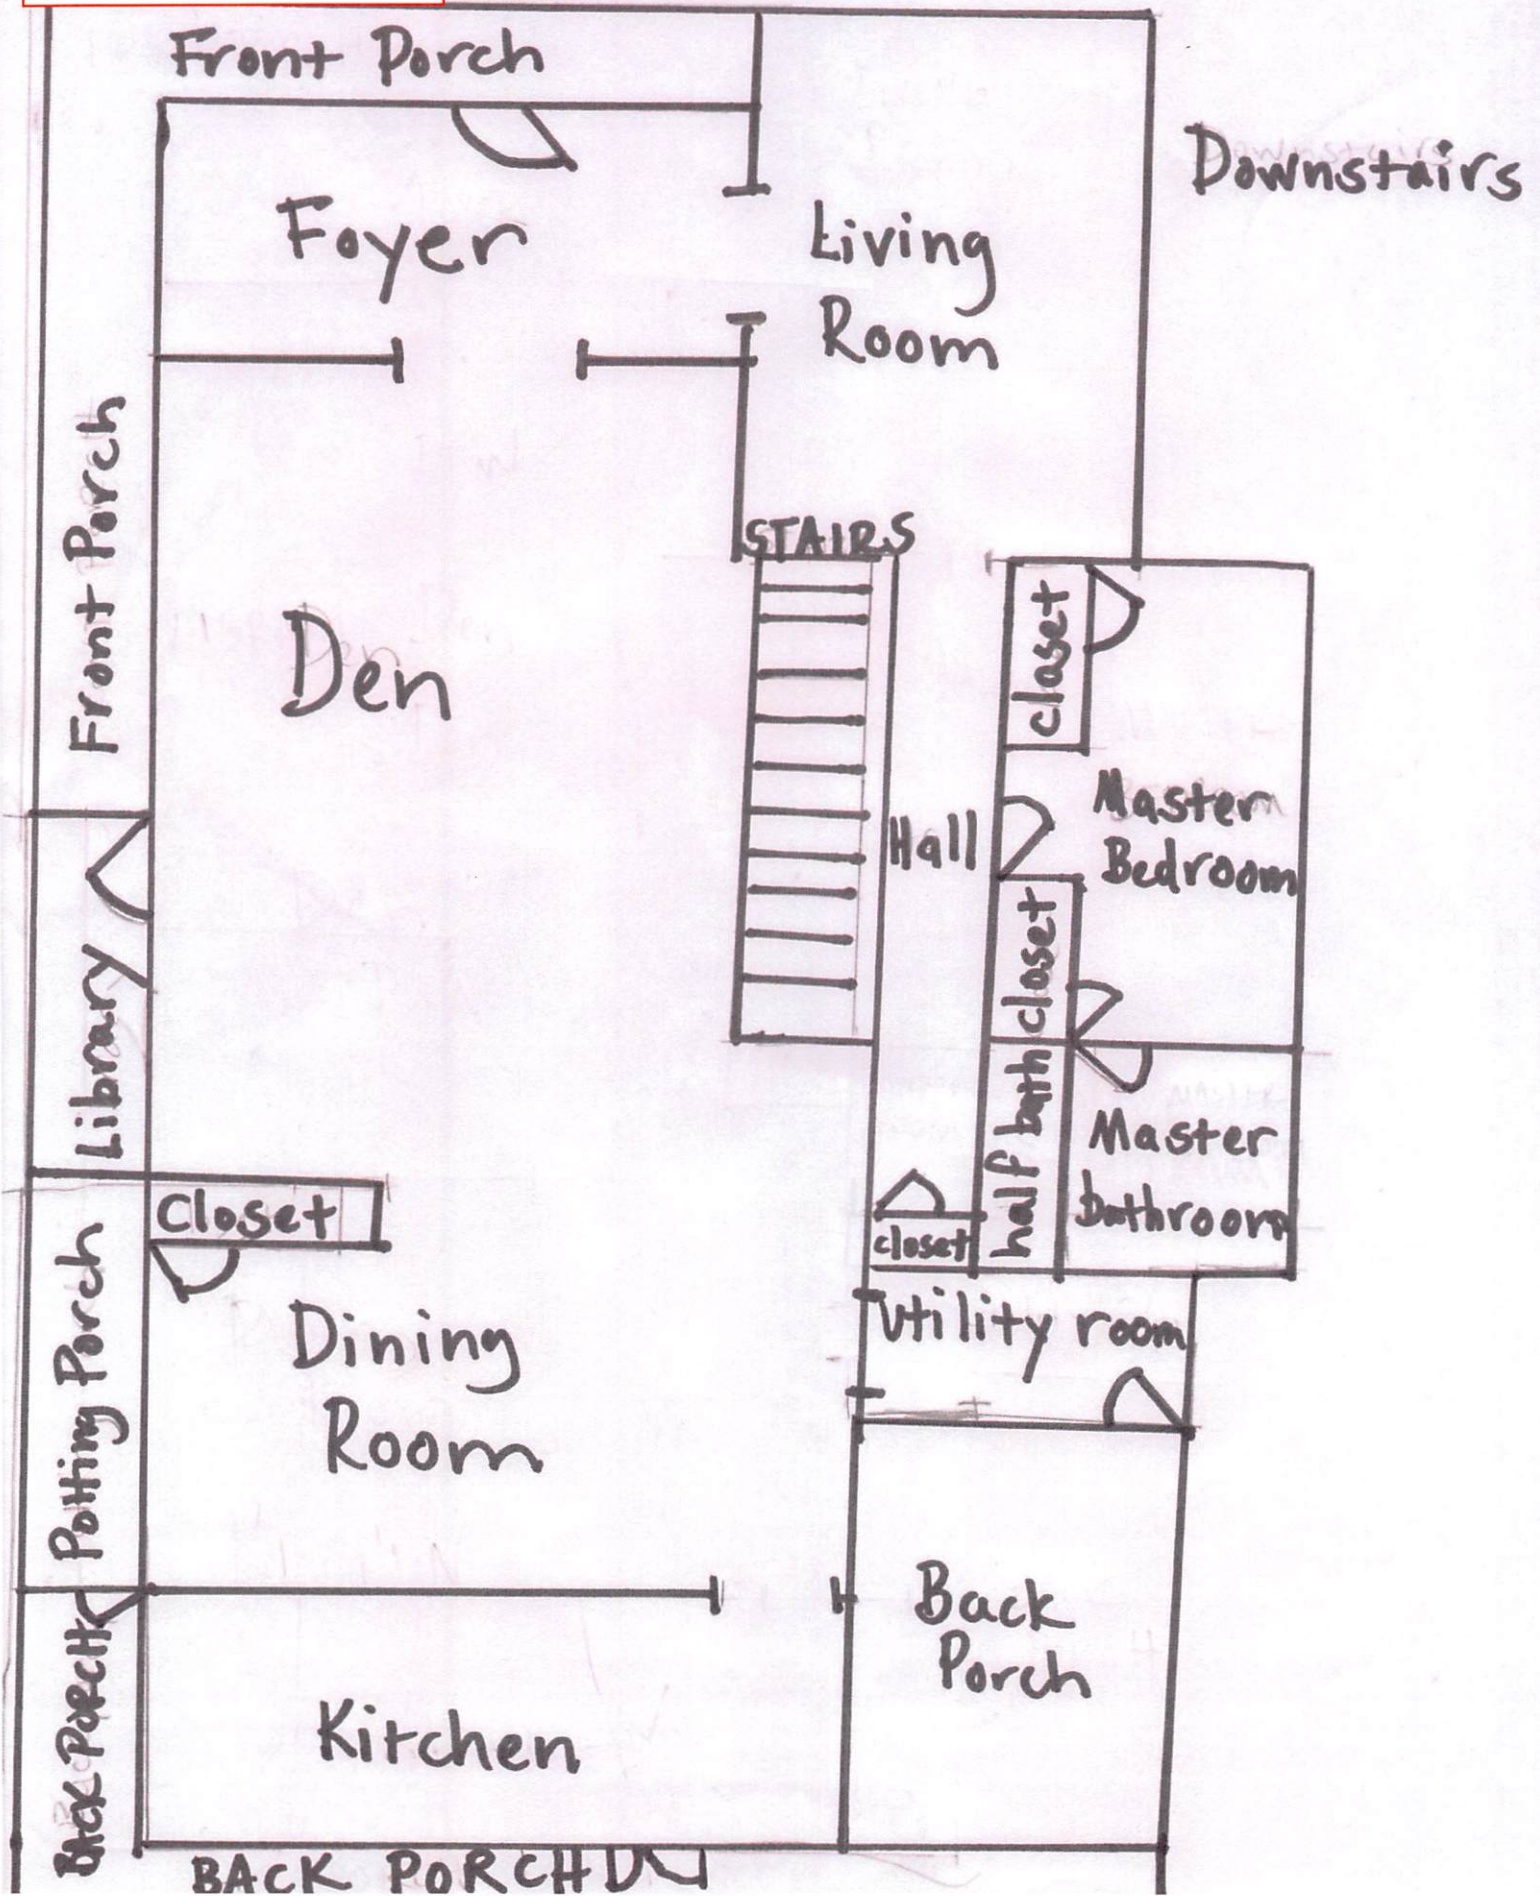 Front Porch
Downstairs
Foyer
Living
Room
Front Porch
STAIRS
Den
closet
Master
Bedroom
Hall
closet
Library
half bath
Master
bathroom
Closet
closet
Potting Porch
Dining
Room
Utility room
Back
Porch
BACK PORCH
Kitchen
BACK PORCH